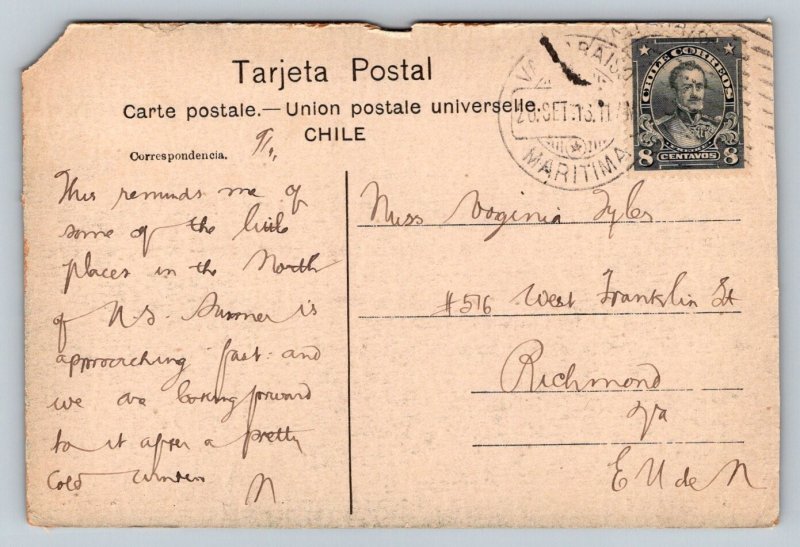 Tarjeta Postal
Carte postale.—Union postale universelle.
CHILE
Correspondencia.
This reminds me of
some of the little
places in the North
of N.S. Summer is
approaching fast and
we are looking forward
to it after a pretty
Cold winter
N.
Miss Virginia Tyler
#516 West Franklin St
Richmond
Va
E U de N
VALPARAISO
MARITIMA
CHILE CORREOS
8 CENTAVOS 8